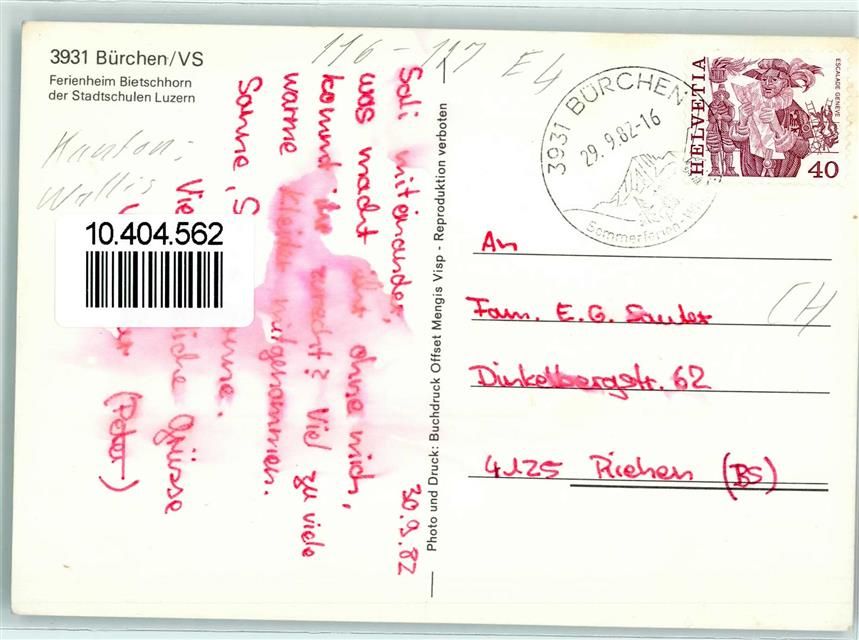 3931 Bürchen/VS
Ferienheim Bietschhorn
der Stadtschulen Luzern
116 - 117 E4
Kanton:
Wallis
10.404.562
30.9.82
Sali mitenander,
was macht ihr ohne mich,
kommt ihr zurecht? Viel zu viele
warme Kleider mitgenommen.
Sonne, S
onne.
Vie liche Grüsse
(Peter)
Photo und Druck: Buchdruck Offset Mengis Visp - Reproduktion verboten
3931 BÜRCHEN
29.9.82-16
Sommerferien
HELVETIA
ESCALADE GENÈVE
40
An
Fam. E.G. Sauter
Dinkelbergstr. 62
4125 Riehen (BS)
CH